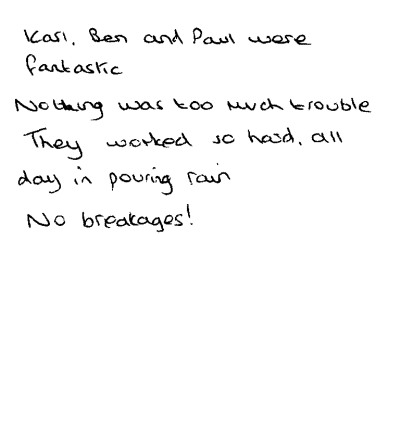 Karl, Ben and Paul were
fantastic
Nothing was too much trouble
They worked so hard, all
day in pouring rain
No breakages!